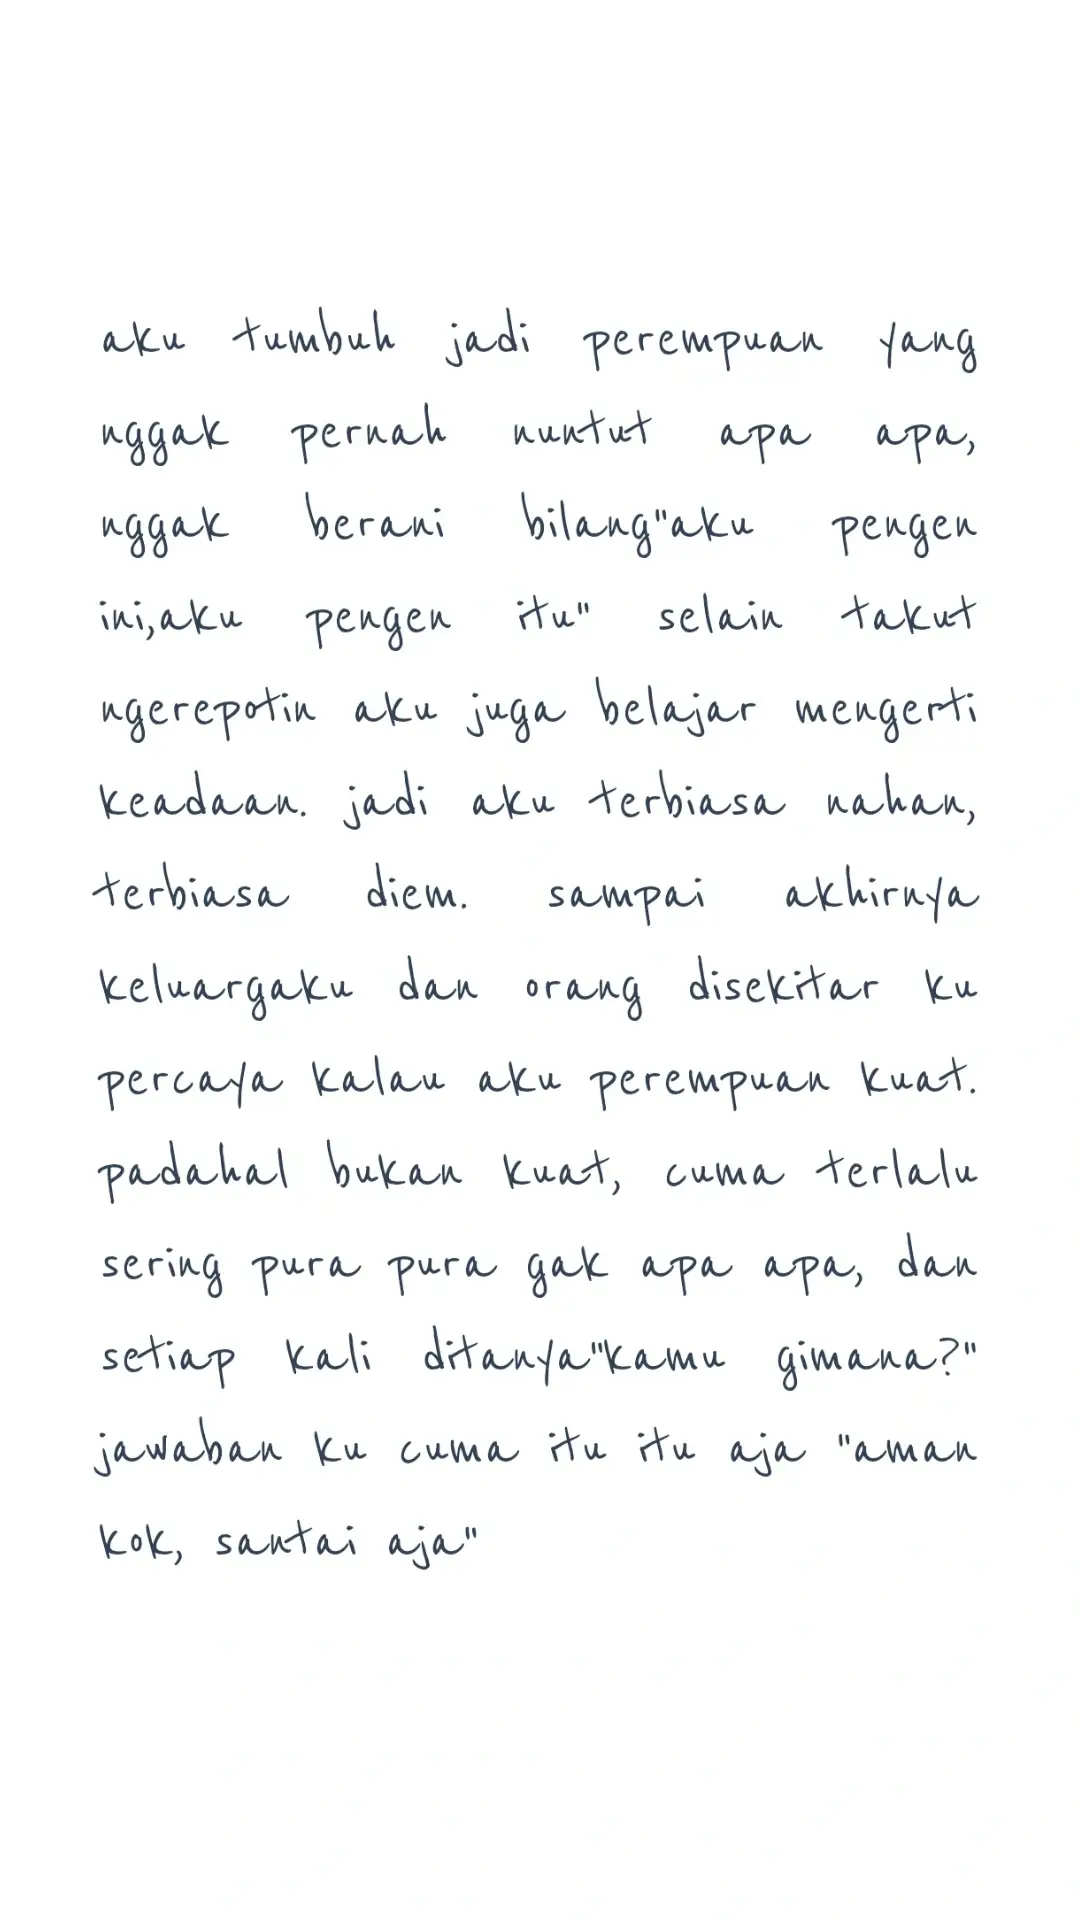 aku tumbuh jadi perempuan yang
nggak pernah nuntut apa apa,
nggak berani bilang"aku pengen
ini,aku pengen itu" selain takut
ngerepotin aku juga belajar mengerti
keadaan. jadi aku terbiasa nahan,
terbiasa diem. sampai akhirnya
keluargaku dan orang disekitar ku
percaya kalau aku perempuan kuat.
padahal bukan kuat, cuma terlalu
sering pura pura gak apa apa, dan
setiap kali ditanya"kamu gimana?"
jawaban ku cuma itu itu aja "aman
kok, santai aja"